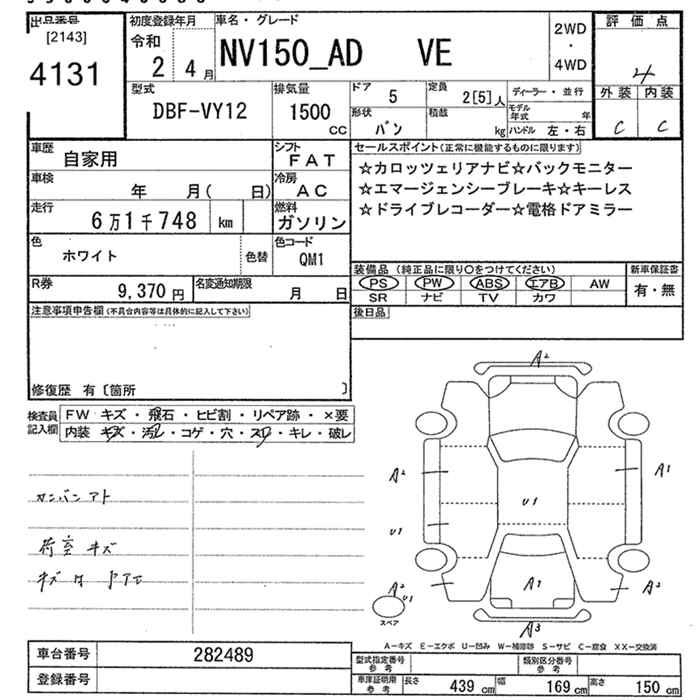 出品番号
[2143]
4131
初度登録年月
令和
2 4月
車名・グレード
NV150_AD VE
2WD
・
4WD
評価点
4
外装 内装
C C
型式
DBF-VY12
排気量
1500
CC
ドア
5
定員
2[5]人
形状
バン
積載
kg
ディーラー・並行
モデル年式 年
ハンドル 左・右
車歴
自家用
シフト
FAT
車検
年 月( 日)
冷房
AC
走行
6万1千748 km
燃料
ガソリン
色
ホワイト
色替
色コード
QM1
R券
9,370円
名変通知期限
月 日
セールスポイント(正常に機能するものに限ります)
☆カロッツェリアナビ☆バックモニター
☆エマージェンシーブレーキ☆キーレス
☆ドライブレコーダー☆電格ドアミラー
装備品 (純正品に限り○をつけてください)
PS PW ABS エアB AW
SR ナビ TV カワ
新車保証書
有・無
後日品
注意事項申告欄(不具合内容等は具体的に記入して下さい)
修復歴 有〔箇所 〕
検査員記入欄
FW キズ・飛石・ヒビ割・リペア跡・×要
内装 キズ・汚レ・コゲ・穴・スリ・キレ・破レ
カンバンアト
荷室 キズ
A2
A2
A1
U1
U1
A2
U1
A1
A2
A3
スペア
A-キズ E-エクボ U-凹み W-補修跡 S-サビ C-腐食 XX-交換済
車台番号
282489
登録番号
型式指定番号
参考
類別区分番号
参考
車庫証明用
参考
長さ 439 cm 幅 169 cm 高さ 150 cm